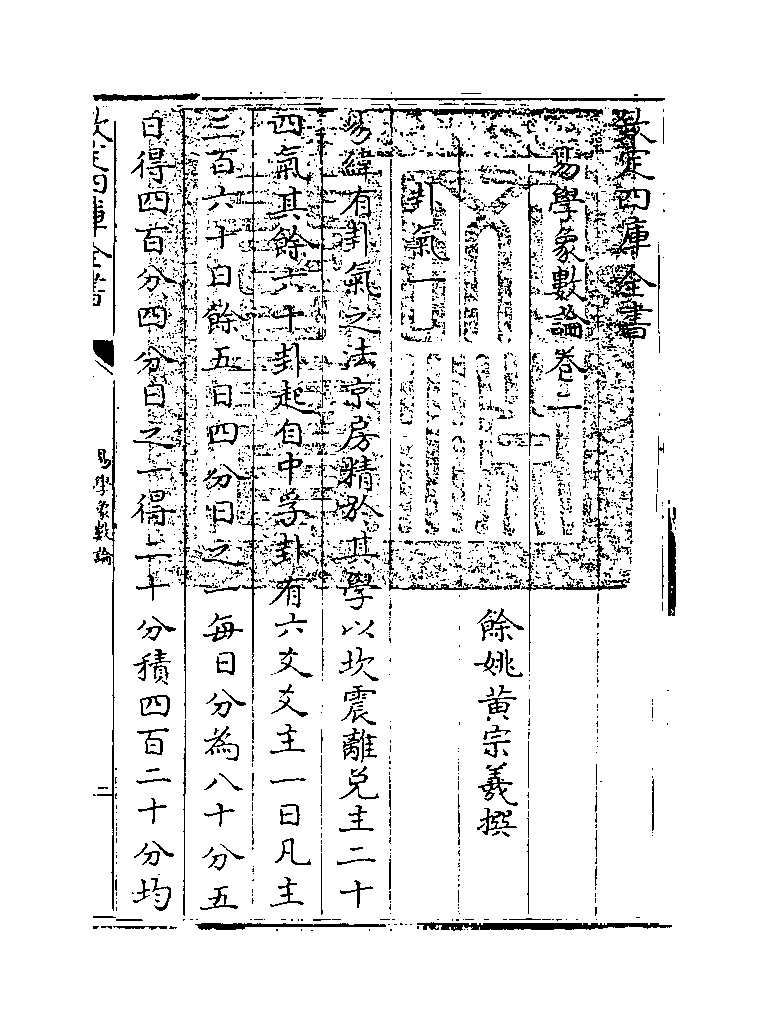 欽定四庫全書
易學象數論卷二
餘姚黄宗羲撰
卦氣一
易緯有卦氣之法京房精於其學以坎震離兌主二十
四氣其餘六十卦起自中孚卦有六爻爻主一日凡主
三百六十日餘五日四分日之一每日分為八十分五
日得四百分四分日之一得二十分積四百二十分均
欽定四庫全書
易學象數論